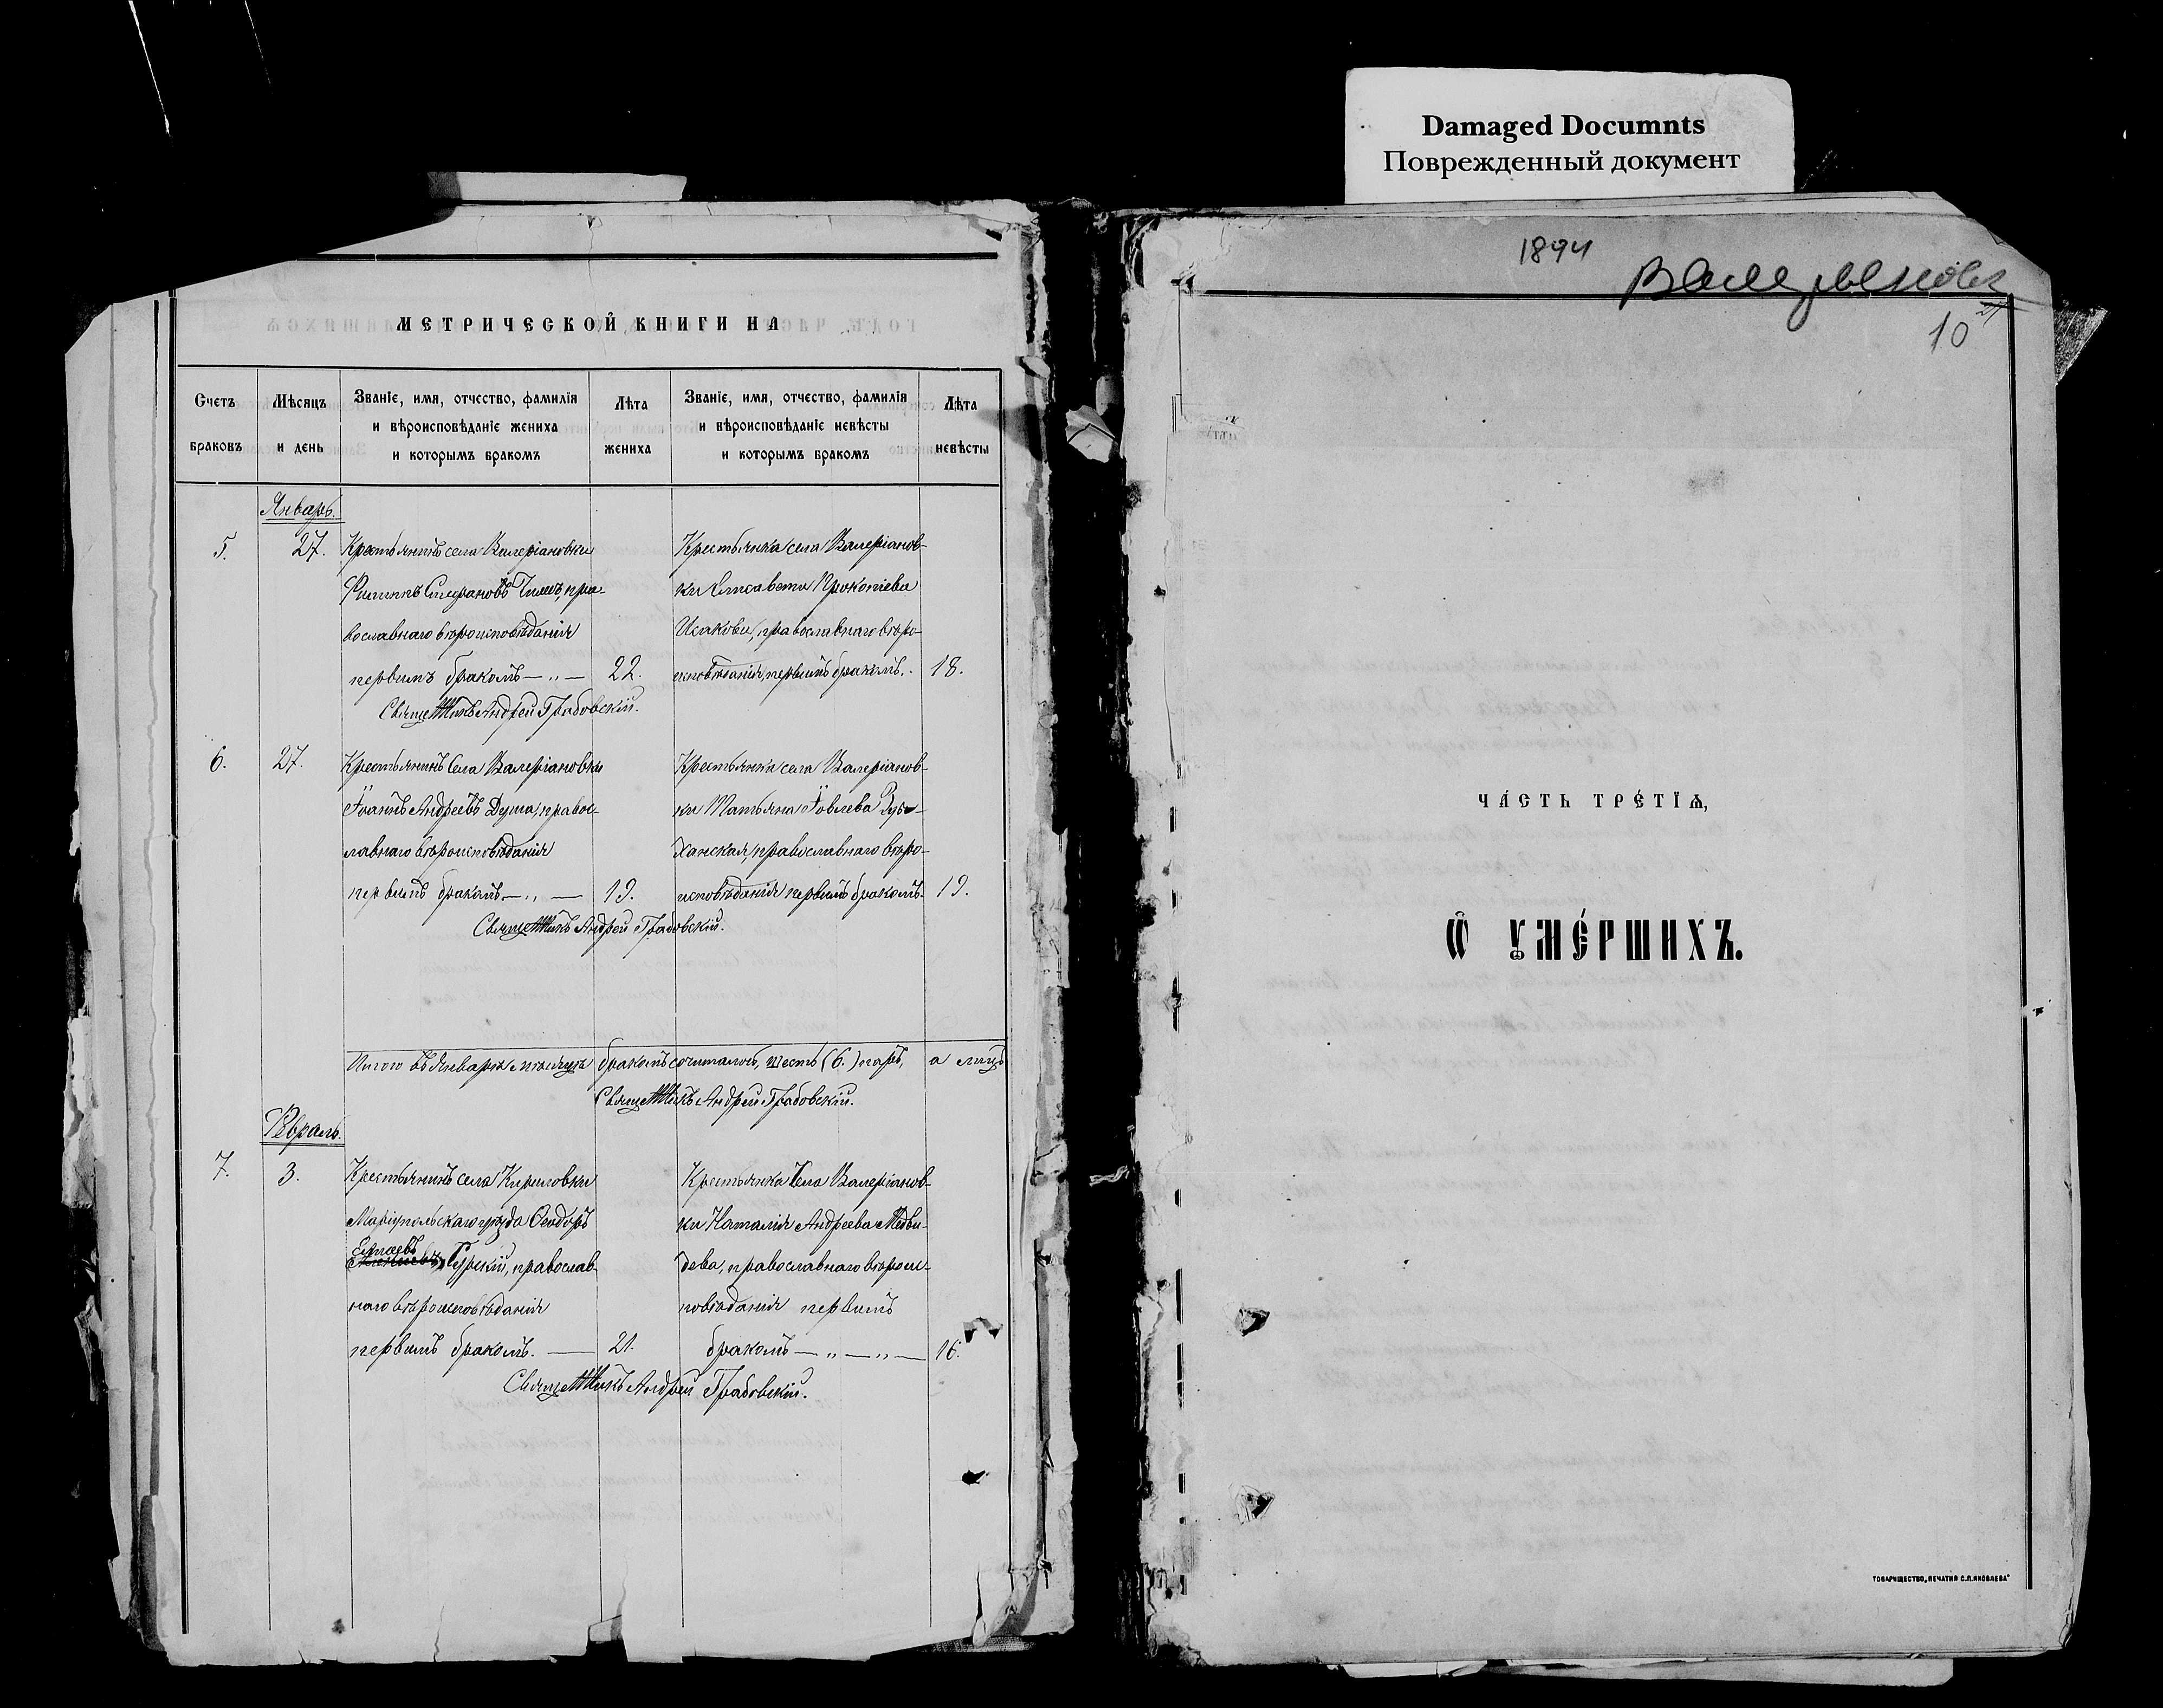 Damaged Documnts
Поврежденный документ
МЕТРИЧЕСКОЙ КНИГИ НА
Счетъ браковъ
Мѣсяцъ и день
Званіе, имя, отчество, фамилія и вѣроисповѣданіе жениха и которымъ бракомъ
Лѣта жениха
Званіе, имя, отчество, фамилія и вѣроисповѣданіе невѣсты и которымъ бракомъ
Лѣта невѣсты
Январь.
5. 27. Крестьянинъ села Валеріановки
Филиппъ Стефановъ, пра-
вославнаго вѣроисповѣданія
первымъ бракомъ — „ — 22.
Крестьянка села Валеріанов-
ки Елисавета Прокопіева
Исакова, православнаго вѣро-
исповѣданія, первымъ бракомъ. 18.
Священникъ Андрей Грабовскій.
6. 27. Крестьянинъ села Валеріановки
Іоаннъ Андреевъ Дума, правос-
лавнаго вѣроисповѣданія
первымъ бракомъ — „ — 19.
Крестьянка села Валеріанов-
ки Татьяна Іовлева
ханская, православнаго вѣро-
исповѣданія первымъ бракомъ. 19.
Священникъ Андрей Грабовскій.
Итого въ Январѣ мѣсяцѣ бракомъ сочиталось, шесть (6.) паръ, а лицъ
Священникъ Андрей Грабовскій.
Февраль.
7. 3. Крестьянинъ села Кириловки
Маріупольскаго уѣзда Ѳеодоръ
Гурскій, православ-
наго вѣроисповѣданія
первымъ бракомъ. — 21.
Крестьянка села Валеріанов-
ки Наталія Андреева Медви-
дева, православнаго вѣроис-
повѣданія первымъ
бракомъ — „ — „ — 16.
Священникъ Андрей Грабовскій.
1894
10
ЧА́СТЬ ТРЕ́ТІѦ,
Ѡ҆ ОУМЕ́РШИХЪ.
ТОВАРИЩЕСТВО „ПЕЧАТНЯ С.П.ЯКОВЛЕВА"